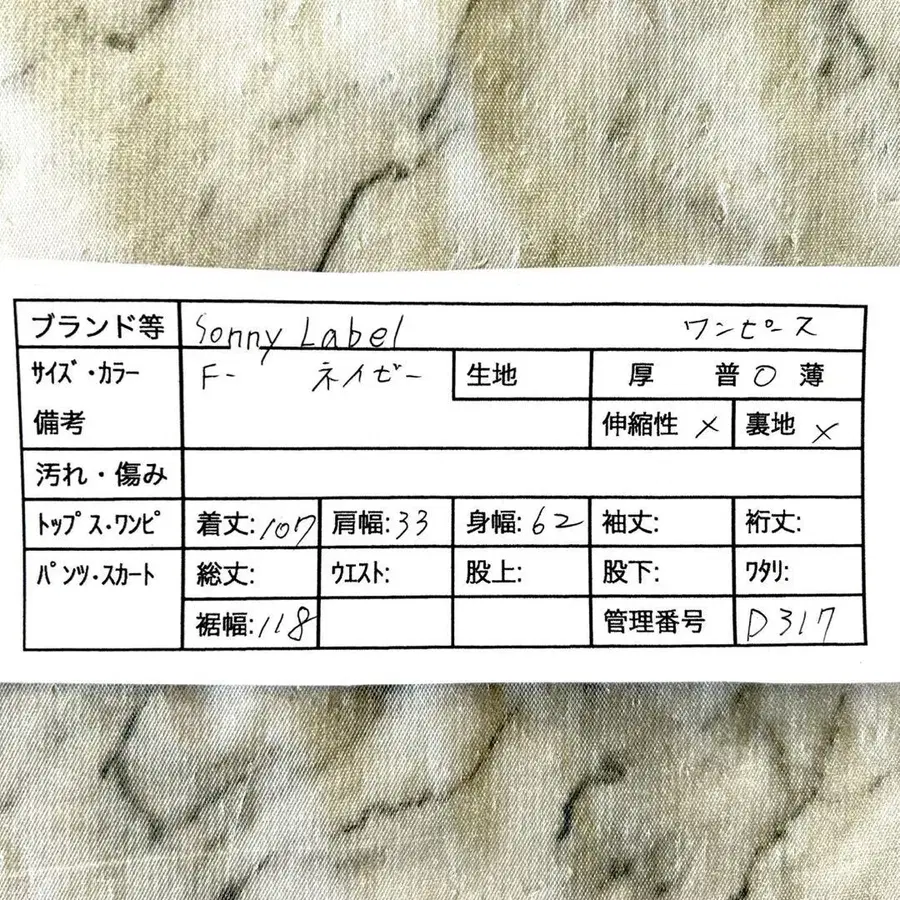 ブランド等 Sonny Label ワンピース
サイズ・カラー F- ネイビー 生地 厚 普○ 薄
備考 伸縮性 × 裏地 ×
汚れ・傷み
トップス・ワンピ 着丈:107 肩幅:33 身幅:62 袖丈: 裄丈:
パンツ・スカート 総丈: ウエスト: 股上: 股下: ワタリ:
裾幅:118 管理番号 D317